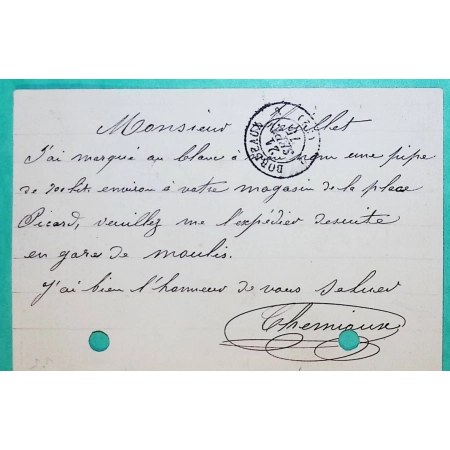 Monsieur
J'ai marqué au blanc à mon nom une pipe
de 700 lit. environ à votre magasin de la place
Picard, veuillez me l'expédier desuite
en gare de moulis.
J'ai bien l'honneur de vous saluer
BORDEAUX